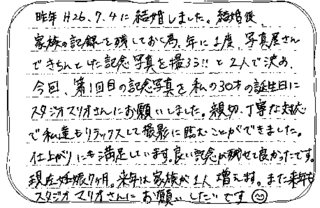 昨年 H26.7.4 に結婚しました。結婚後
家族の記録を残しておく為、年に1度、写真屋さん
できちんとした記念写真を撮ろう!!と2人で決め、
今回、第1回目の記念写真を私の30才の誕生日に
スタジオマリオさんにお願いしました。親切、丁寧な対応
で私達もリラックスして撮影に臨むことができました。
仕上がりにも満足しています。良い記念が残せて良かったです。
現在妊娠7ヶ月。来年は家族が1人増えます。また来年も
スタジオマリオさんにお願いしたいです